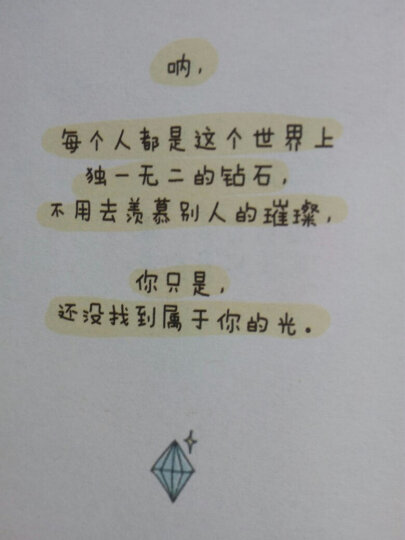 呐，
每个人都是这个世界上
独一无二的钻石，
不用去羡慕别人的璀璨，
你只是，
还没找到属于你的光。